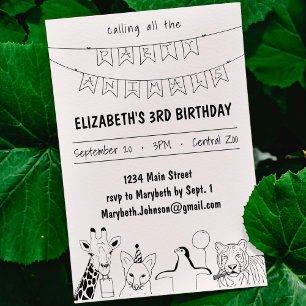 calling all the
PARTY
ANIMALS
ELIZABETH'S 3RD BIRTHDAY
September 20 • 3PM • Central Zoo
1234 Main Street
rsvp to Marybeth by Sept. 1
Marybeth.Johnson@gmail.com